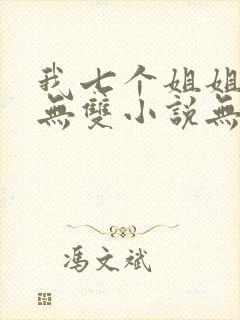 我七个姐姐
無雙小説無
馮文斌